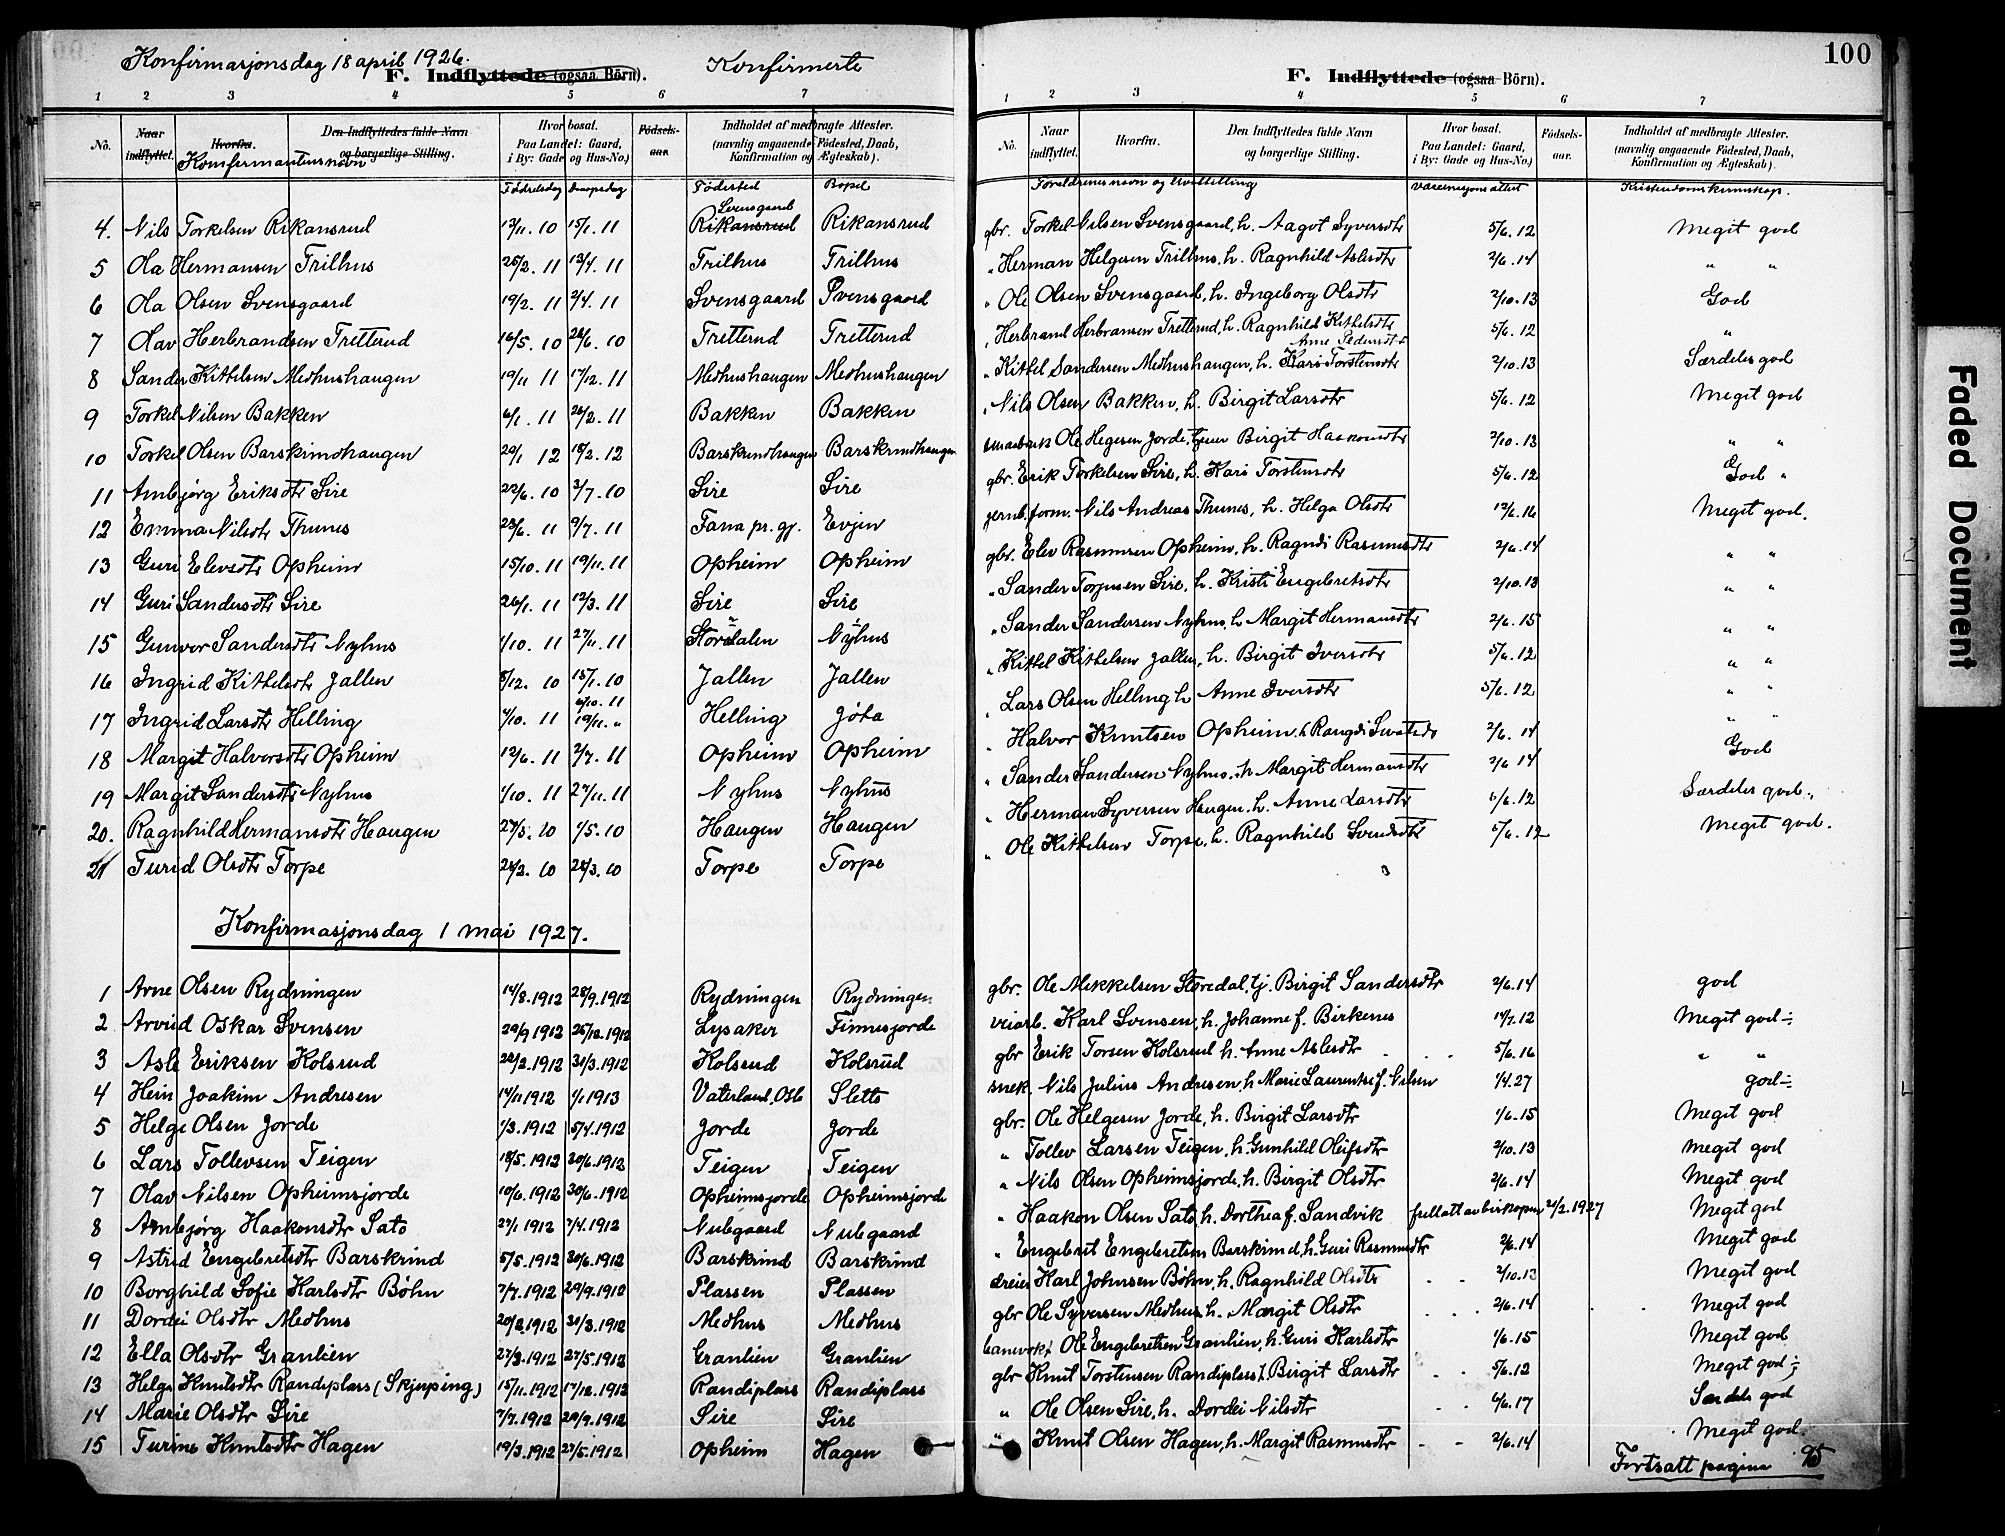 Konfirmasjonsdag 18 april 1926.
Konfirmerte
F. Indflyttede (ogsaa Börn).
1 2 3 4 5 6 7
No. Naar indflyttet. Hvorfra. Den Indflyttedes fulde Navn og borgerlige Stilling. Hvor bosat. Paa Landet: Gaard, i By: Gade og Hus-No.) Födselsaar. Indholdet af medbragte Attester. (navnlig angaaende Födested, Daab, Konfirmation og Ægteskab).
Konfirmantens navn
Fødselsdag Daapsdag Fødested Bopel
Svensgaard
4. Nils Torkelsen Rikansrud 13/11. 10 15/1. 11 Rikansrud Rikansrud
5 Ola Hermansen Trilhus 25/2. 11 12/4. 11 Trilhus Trilhus
6 Ola Olsen Svensgaard 19/2. 11 2/4. 11 Svensgaard Svensgaard
7 Olav Herbrandsen Tretterud 16/5. 10 26/6. 10 Tretterud Tretterud
8 Sander Kittelsen Medhushaugen 19/11 11 17/12. 11 Medhushaugen Medhushaugen
9 Torkel Nilsen Bakken 6/1. 11 26/2. 11 Bakken Bakken
10 Torkel Olsen Barskrindhaugen 20/1 12 18/2. 12 Barskrindhaugen Barskrindhaugen
11 Ambjørg Eriksdtr Sire 22/6. 10 3/7. 10 Sire Sire
12 Emma Nilsdtr Thunes 23/6. 11 9/7. 11 Fana pr. gj. Evjen
13 Guri Elevsdtr Opheim 15/10. 11 19/11. 11 Opheim Opheim
14 Guri Sandersdtr Sire 26/1. 11 12/3. 11 Sire Sire
15 Gunvor Sandersdtr Nyhus 1/10. 11 27/11. 11 Stordalen Nyhus
16 Ingrid Kittelsdtr Jallen 8/12. 10 15/1. 10 Jallen Jallen
17 Ingrid Larsdtr Helling 4/10. 11 19/11. " Helling Jøta
18 Margit Halvorsdtr Opheim 12/6. 11 2/7. 11 Opheim Opheim
19 Margit Sandersdtr Nyhus 1/10. 11 27/11. 11 Nyhus Nyhus
20. Ragnhild Hermansdtr Haugen 27/3. 10 1/5. 10 Haugen Haugen
21 Turid Olsdtr Torpe 24/2. 10 28/3. 10 Torpe Torpe
Konfirmasjonsdag 1 mai 1927.
1 Arne Olsen Rydningen 14/8.1912 28/9.1912 Rydningen Rydningen
2 Arvid Oskar Svensen 20/9 1912 26/12.1912 Lysaker Finnesjorde
3 Asle Eriksen Kolsrud 22/2.1912 31/3.1912 Kolsrud Kolsrud
4 Hein Joakim Andresen 14/11 1912 1/1 1913 Vaterland, Oslo Sletto
5 Helge Olsen Jorde 1/3.1912 5/4.1912 Jorde Jorde
6 Lars Tollevsen Teigen 18/5.1912 30/6.1912 Teigen Teigen
7 Olav Nilsen Opheimsjorde 10/6.1912 30/6.1912 Opheimsjorde Opheimsjorde
8 Ambjørg Haakonsdtr Sato 27/1 1912 7/4.1912 Nubgaard Nubgaard
9 Astrid Engebretsdtr Barskrind 5/5.1912 30/6.1912 Barskrind Barskrind
10 Borghild Sofie Karlsdtr Bøhn 7/7.1912 29/9.1912 Plassen Plassen
11 Dordei Olsdtr Medhus 20/2.1912 31/3.1912 Medhus Medhus
12 Ella Olsdtr Granlien 27/3.1912 27/5.1912 Granlien Granlien
13 Helga Knutsdtr Randiplass (Skjerping) 15/11.1912 17/12.1912 Randiplass Randiplass
14 Marie Olsdtr Sire 7/7.1912 29/9.1912 Sire Sire
15 Turine Knutsdtr Hagen 19/3.1912 27/5.1912 Opheim Hagen
100
F. Indflyttede (ogsaa Börn).
1 2 3 4 5 6 7
No. Naar indflyttet. Hvorfra. Den Indflyttedes fulde Navn og borgerlige Stilling. Hvor bosat. Paa Landet: Gaard, i By: Gade og Hus-No.) Födselsaar. Indholdet af medbragte Attester. (navnlig angaaende Födested, Daab, Konfirmation og Ægteskab).
Foreldrenes navn og livsstilling Vaccinasjonsattest Kristendomskunnskap.
gbr. Torkel Nilsen Svensgaard, h. Aagot Syversdtr 5/6. 12 Meget god
" Herman Helgesen Trilhus, h. Ragnhild Aslesdtr 2/6. 14 " "
" Ole Olsen Svensgaard, h. Ingeborg Olsdtr 2/10. 13 God
" Herbrand Herbransen Tretterud, h. Ragnhild Kittelsdtr 5/6. 12 "
Anne Pedersdtr
" Kittel Sandersen Medhushaugen, h. Kari Torstensdtr 2/10. 13 Særdeles god
" Nils Olsen Bakken, h. Birgit Larsdtr 5/6. 12 Meget god
smaabruk Ole Hegesen Jorde, tjener Birgit Haakonsdtr 2/10. 13 " "
gbr. Erik Torkelsen Sire, h. Kari Torstensdtr 5/6. 12 God "
jernb.form. Nils Andreas Thunes, h. Helga Olsdtr 12/6. 16 Meget god.
gbr. Elev Rasmusen Opheim, h. Ragndi Rasmusdtr 2/6. 14 " "
" Sander Torgersen Sire, h. Kristi Engebretsdtr 2/10. 13 " "
" Sander Sandersen Nyhus, h. Margit Hermansdtr 2/6. 15 " "
" Kittel Kittelsen Jallen, h. Birgit Iversdtr 5/6. 12 " "
" Lars Olsen Helling h Anne Iversdtr 5/6. 12 " "
" Halvor Knutsen Opheim, h Rangdi 2/6. 14 " "
" Sander Sandersen Nyhus, h Margit Hermansdtr 2/6 14 God
" Herman Syversen Haugen, h. Anne Larsdtr 5/6. 12 Særdeles god.
" Ole Kittelsen Torpe, h. Ragnhild Svendsdtr 5/6. 12 Meget god.
gbr. Ole Mikkelsen Storedal, tj. Birgit Sandersdtr 2/6. 14 god
veiarb. Karl Svensen, h. Johanne f. Birkenes 14/7. 12 Meget god ÷
gbr Erik Torsen Kolsrud h. Anne Aslesdtr 5/6. 16 " "
snek. Nils Julius Andresen, h. Marie Laurentse f. Nilsen 1/4. 27 god ÷
gbr. Ole Helgesen Jorde, h. Birgit Larsdtr 1/6. 15 Meget god
" Tollev Larsen Teigen, h. Gunhild Oleifsdtr 2/10. 13 Meget god
" Nils Olsen Opheimsjorde, h. Birgit Olsdtr 2/6. 14 Meget god
" Haakon Olsen Sato, h. Dorthea f. Sandvik fritatt av biskopen 2/2. 1927 Meget god
" Engebret Engebretsen Barskrind, h. Guri Rasmusdtr 2/6. 14 Meget god
dreier Karl Johnsen Bøhn, h. Ragnhild Olsdtr 2/10. 13 Meget god
gbr Ole Syversen Medhus, h. Margit Olsdtr 2/6. 14 Meget god
banevokt. Ole Engebretsen Granlien, h. Guri Karlsdtr 1/6. 15 Meget god
gbr Knut Torstensen Randiplass h. Birgit Larsdtr 5/6. 12 Meget god ÷
" Ole Olsen Sire, h. Dordei Nilsdtr 4/6. 17 Særdeles god
" Knut Olsen Hagen, h. Margit Rasmusdtr 2/6. 14 Meget god.
Fortsatt pagina 95
Faded Document